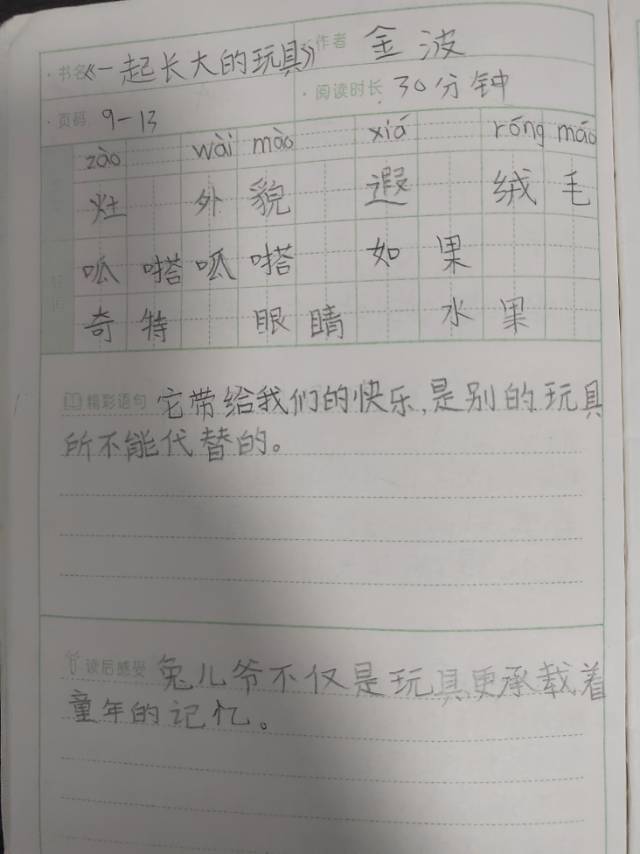 ·书名《一起长大的玩具》 ·作者 金波
·页码 9-13 ·阅读时长 30分钟
zào wài mào xiá róng máo
灶 外貌 遐 绒毛
呱嗒呱嗒 如果
奇特 眼睛 水果
精彩语句 它带给我们的快乐,是别的玩具
所不能代替的。
读后感受 兔儿爷不仅是玩具更承载着
童年的记忆。